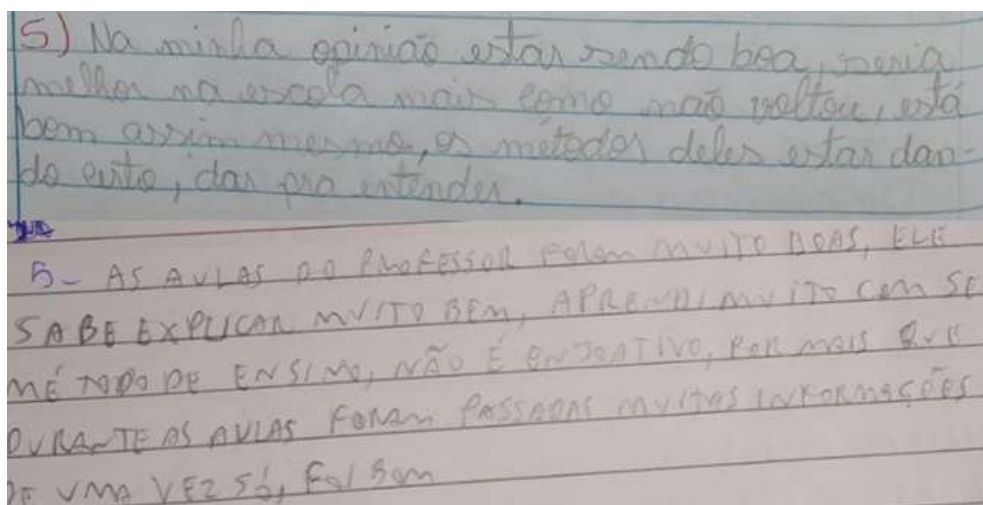 5) Na minha opinião estar sendo boa, seria
melhor na escola mais como não voltou, está
bem assim mesmo, os métodos deles estar dan-
do certo, dar pra entender.
5- AS AULAS DO PROFESSOR FORAM MUITO BOAS, ELE
SABE EXPLICAR MUITO BEM, APRENDI MUITO COM SE
MÉTODO DE ENSINO, NÃO É ENJOATIVO, POR MAIS QUE
DURANTE AS AULAS FORAM PASSADAS MUITAS INFORMAÇÕES
DE UMA VEZ SÓ, FOI BOM